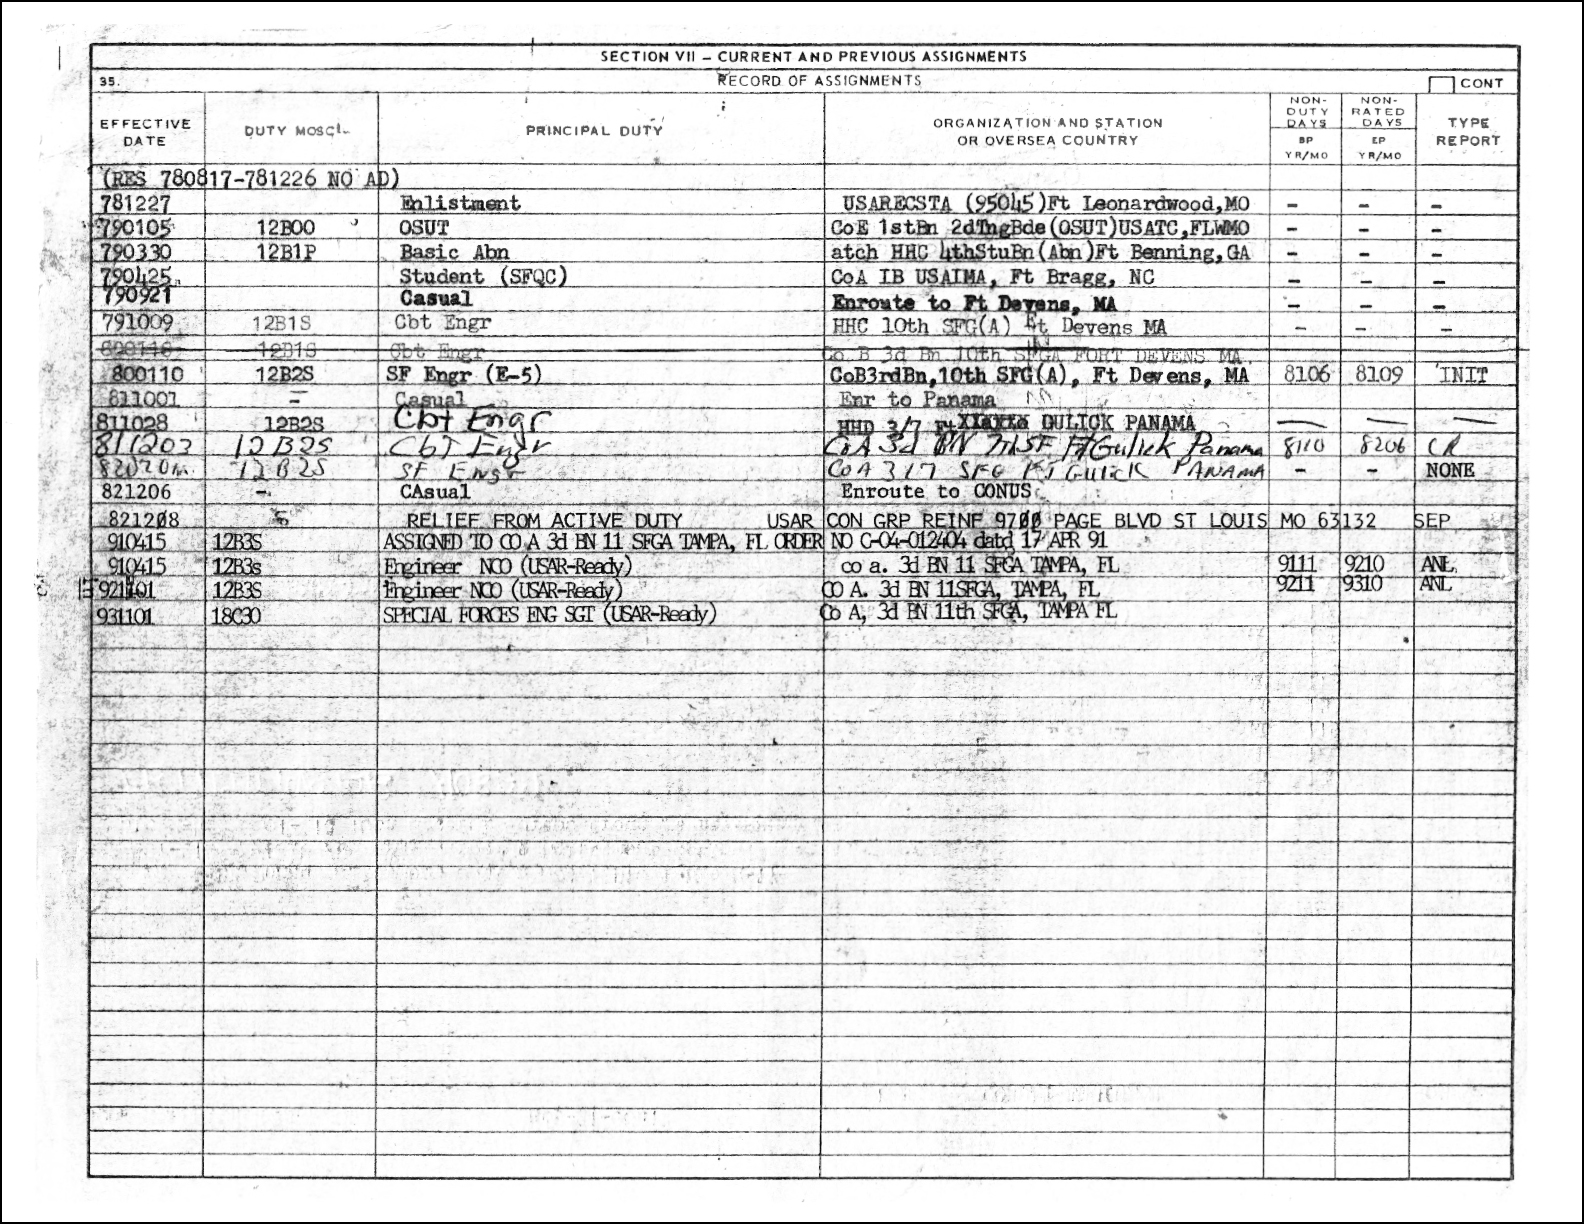 SECTION VII – CURRENT AND PREVIOUS ASSIGNMENTS
35. RECORD OF ASSIGNMENTS CONT
EFFECTIVE DATE DUTY MOSC PRINCIPAL DUTY ORGANIZATION AND STATION OR OVERSEA COUNTRY NON-DUTY DAYS BP YR/MO NON-RATED DAYS EP YR/MO TYPE REPORT
(RES 780817-781226 NO AD)
781227 Enlistment USARECSTA (95045)Ft Leonardwood,MO – – –
790105 12B00 OSUT CoE 1stBn 2dTngBde(OSUT)USATC,FLWMO – – –
790330 12B1P Basic Abn atch HHC 4thStuBn(Abn)Ft Benning,GA – – –
790425 Student (SFQC) CoA IB USAIMA, Ft Bragg, NC – – –
790921 Casual Enroute to Ft Devens, MA – – –
791009 12B1S Cbt Engr HHC 10th SFG(A) Ft Devens MA – – –
12B1S Cbt Engr Co B 3d Bn 10th SFGA FORT DEVENS MA
800110 12B2S SF Engr (E-5) CoB3rdBn,10th SFG(A), Ft Devens, MA 8106 8109 INIT
811001 – Casual Enr to Panama
811028 12B2S Cbt Engr HHD 3/7 Ft GULICK PANAMA – – –
811203 12B2S Cbt Engr CoA 3d BN 7thSF Ft Gulick Panama 8110 8206 CR
12B2S SF Engr CoA 3/7 SFG Gulick PANAMA – – NONE
821206 – CAsual Enroute to CONUS
821208 RELIEF FROM ACTIVE DUTY USAR CON GRP REINF 9700 PAGE BLVD ST LOUIS MO 63132 SEP
910415 12B3S ASSIGNED TO CO A 3d BN 11 SFGA TAMPA, FL ORDER NO C-04-012404 datd 17 APR 91
910415 12B3s Engineer NCO (USAR-Ready) co a. 3d BN 11 SFGA TAMPA, FL 9111 9210 ANL
921101 12B3S Engineer NCO (USAR-Ready) CO A. 3d BN 11SFGA, TAMPA, FL 9211 9310 ANL
931101 18C30 SPECIAL FORCES ENG SGT (USAR-Ready) Co A, 3d BN 11th SFGA, TAMPA FL